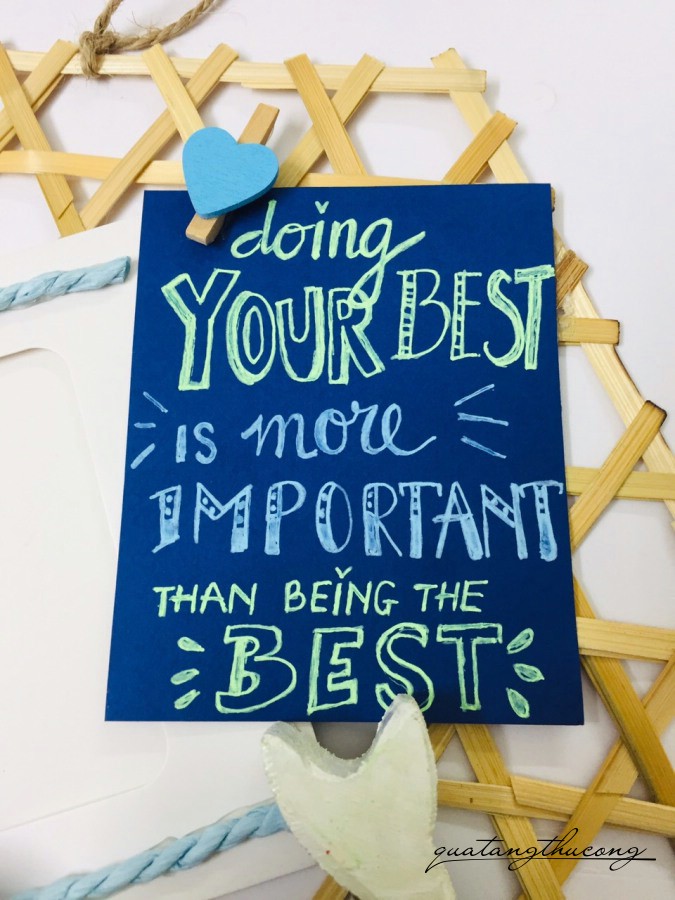 doing
YOUR BEST
is more
IMPORTANT
THAN BEING THE
BEST
quatangthucong